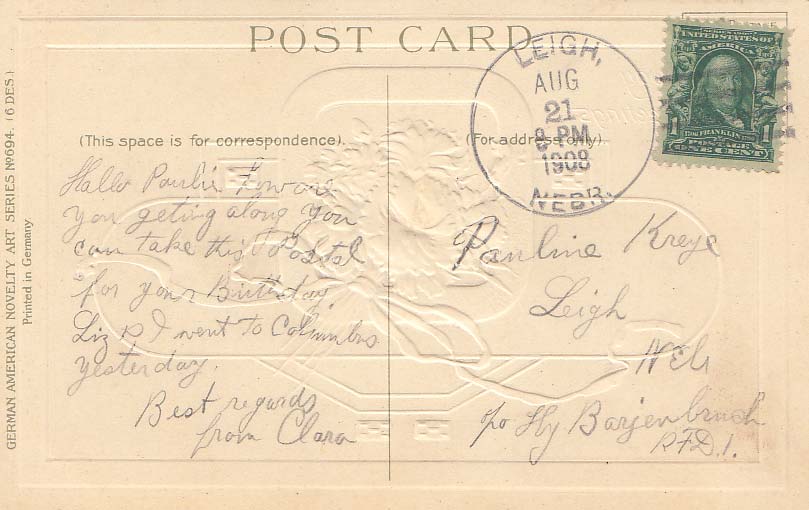 POST CARD
LEIGH,
AUG
21
8 PM
1908
NEBR.
UNITED STATES OF
AMERICA
1 FRANKLIN 1
POSTAGE
ONE CENT
(This space is for correspondence).
(For address only).
Hallo Paulie How are
you geting along you
can take this Postal
for your Birthday.
Liz & I went to Columbus
yesterday.
Best regards
from Clara
Pauline Kreye
Leigh
Neb
c/o Hy Barjenbruch
R.F.D. 1.
GERMAN AMERICAN NOVELTY ART SERIES No 694. (6 DES.)
Printed in Germany